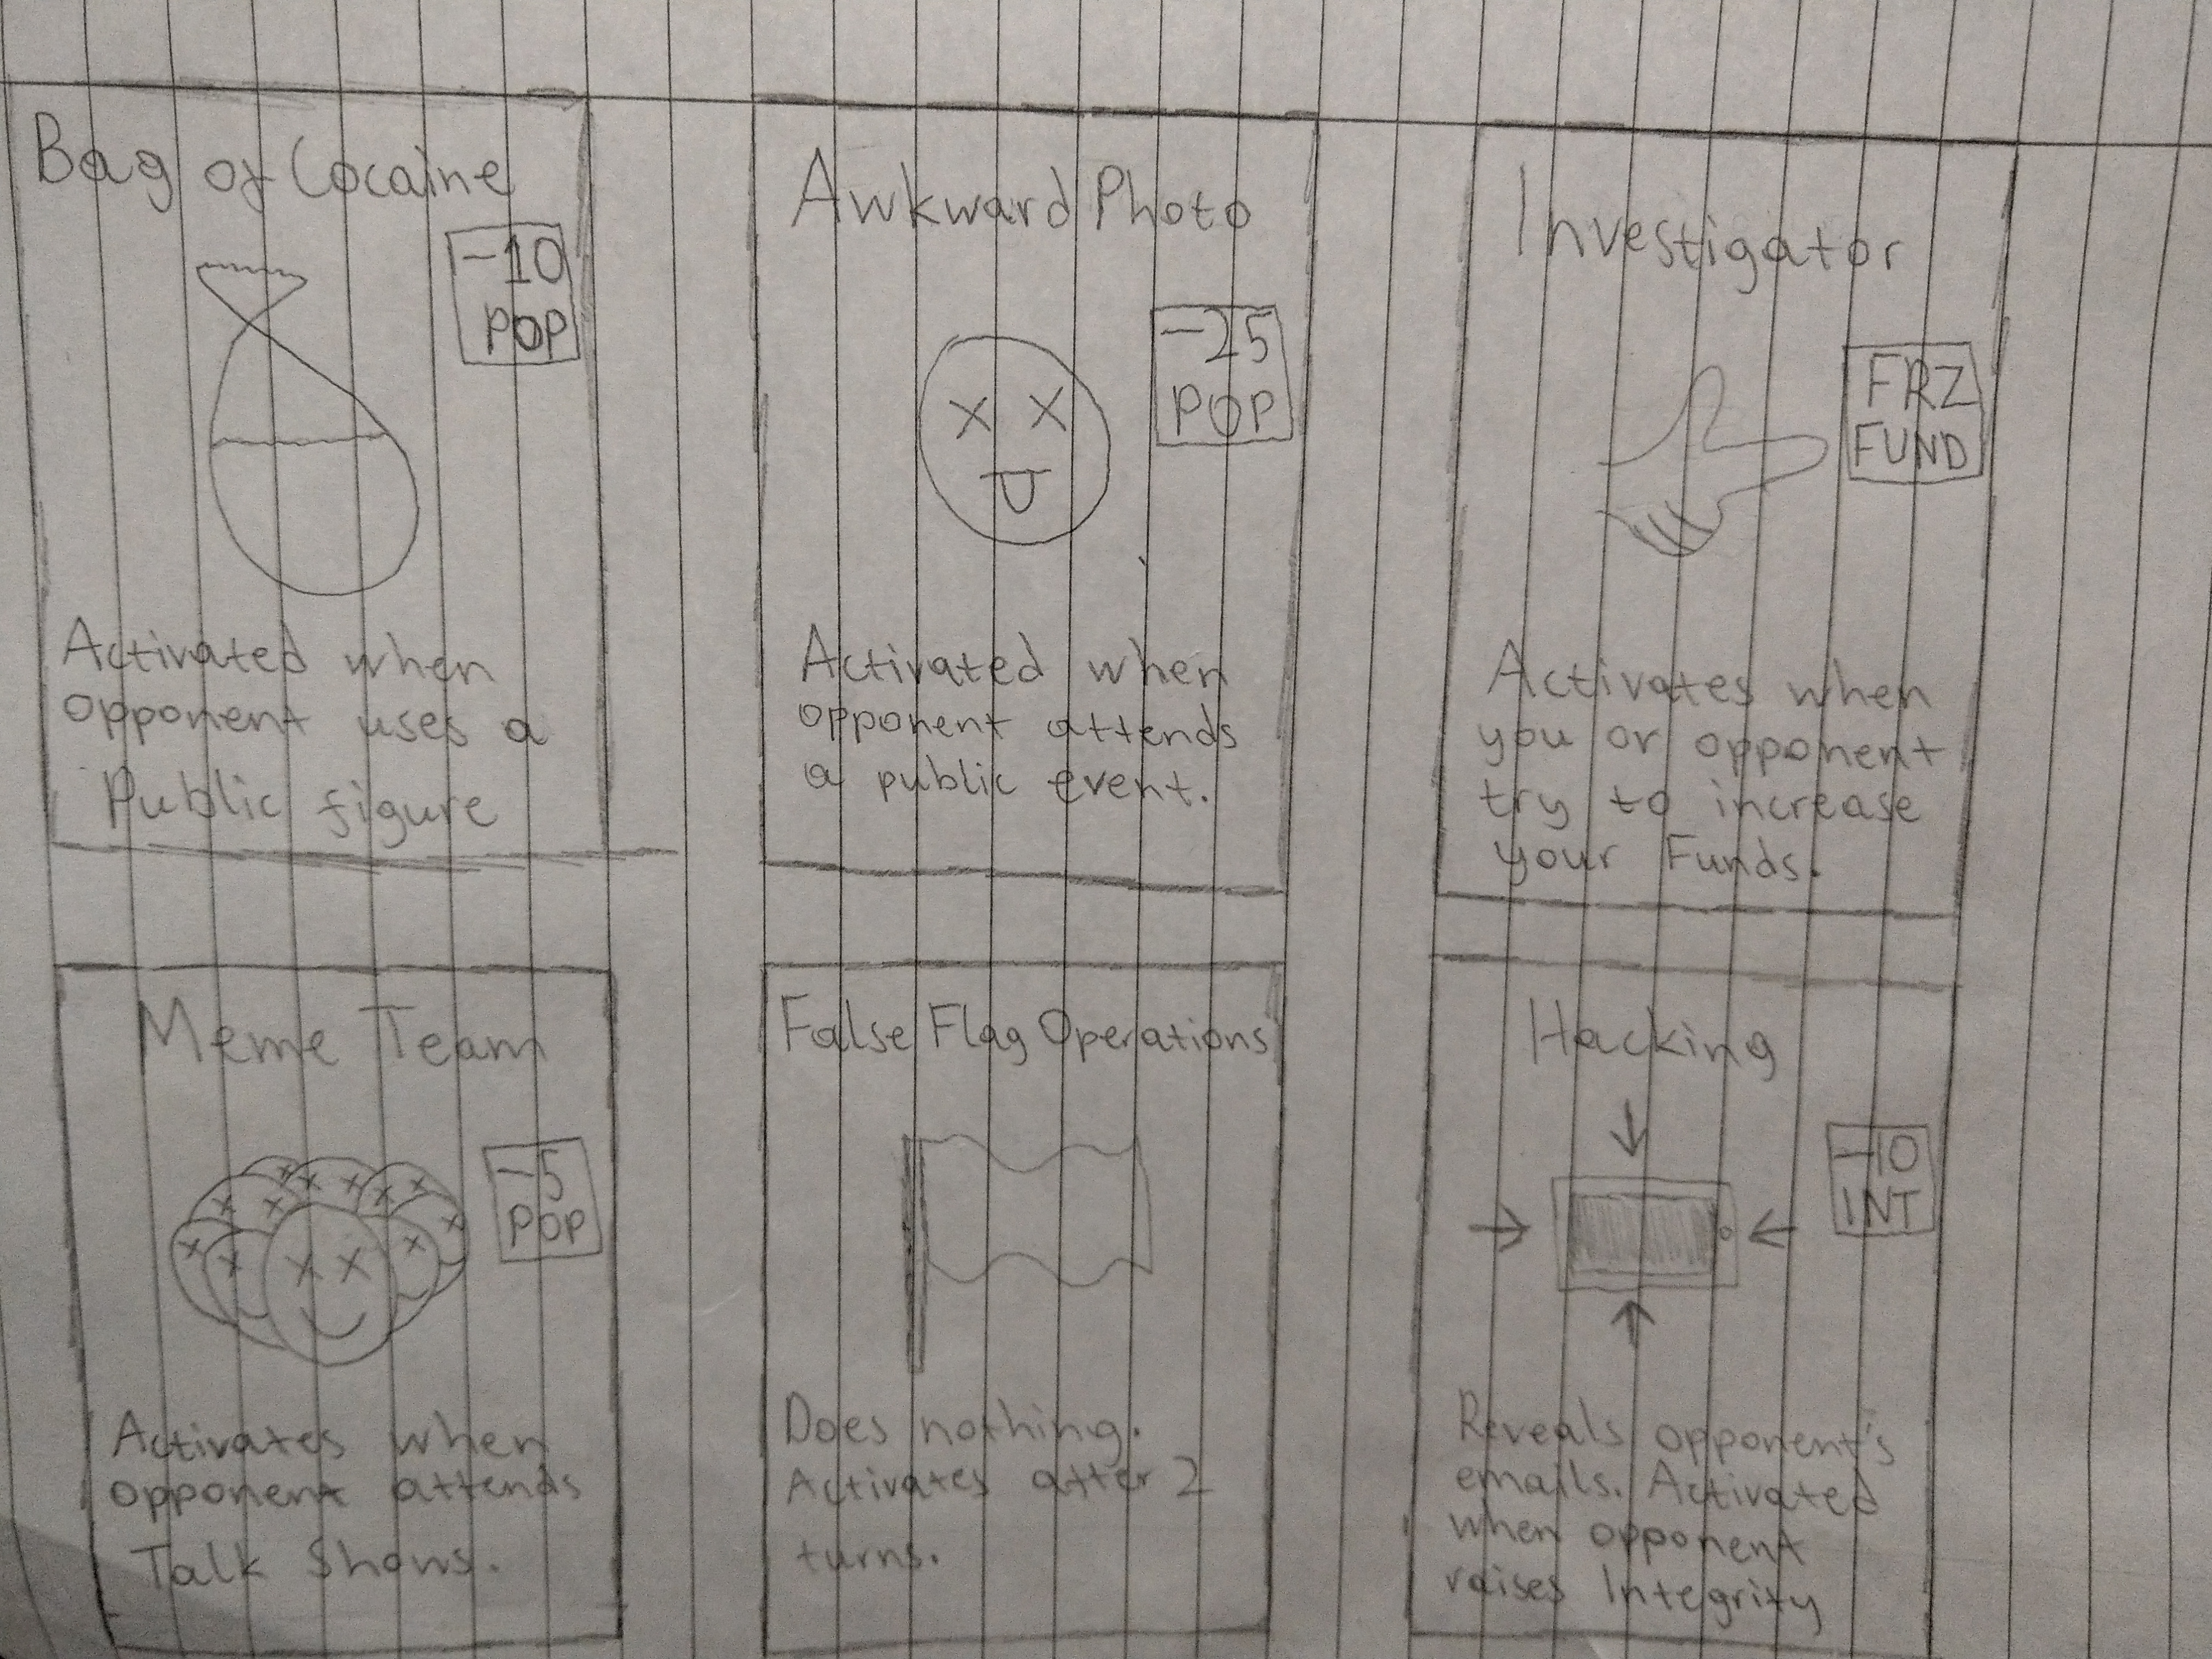 Bag of Cocaine
-10
POP
Activated when
opponent uses a
Public figure
Awkward Photo
-25
POP
Activated when
opponent attends
a public event.
Investigator
FRZ
FUND
Activates when
you or opponent
try to increase
your Funds.
Meme Team
-5
POP
Activates when
opponent attends
Talk Shows.
False Flag Operations
Does nothing.
Activates after 2
turns.
Hacking
-10
INT
Reveals opponent's
emails. Activated
when opponent
raises Integrity